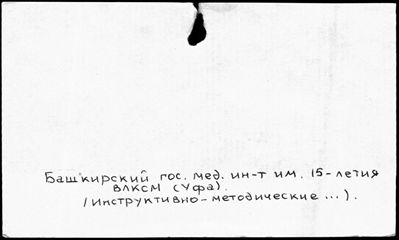 Башкирский гос. мед. ин-т им. 15-летия
ВЛКСМ (Уфа).
/Инструктивно-методические ...).